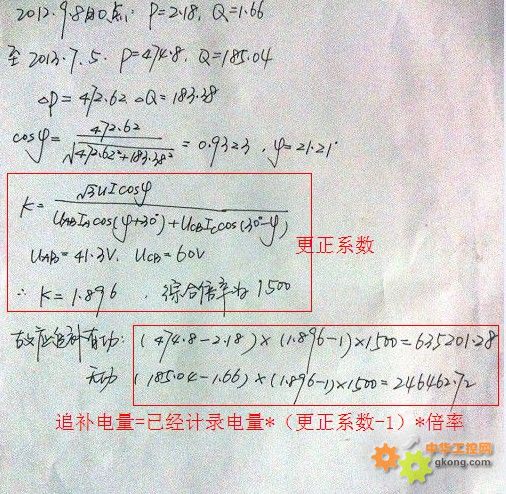 2012.9.8日0点: P=2.18, Q=1.66
至2013.7.5. P=474.8, Q=185.04
△P=472.62 △Q=183.38
cosφ=472.62/√472.62²+183.38²=0.9323, φ=21.21°
K=√3UIcosφ/UABIAcos(φ+30°)+UCBICcos(30°-φ)
更正系数
UAB=41.3V, UCB=60V
∴ K=1.896, 综合倍率为1500
故应追补有功: (474.8-2.18)×(1.896-1)×1500=635201.28
无功 (185.04-1.66)×(1.896-1)×1500=246462.72
追补电量=已经计录电量*（更正系数-1）*倍率
中华工控网
gkong.com